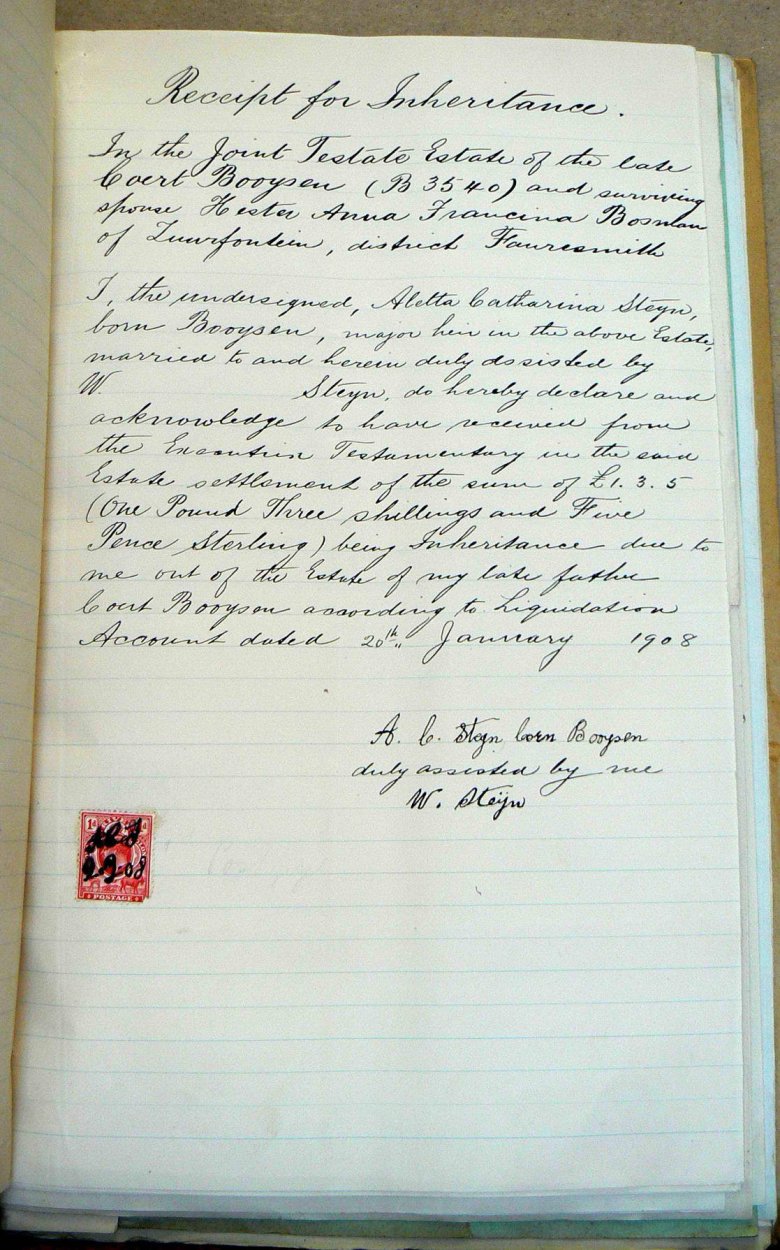 Receipt for Inheritance.
In the Joint Testate Estate of the late
Coert Booysen (B 3540) and surviving
spouse Hester Anna Francina Bosman
of Zuurfontein, district Fauresmith
I, the undersigned, Aletta Catharina Steyn,
born Booysen, major heir in the above Estate,
married to and herein duly assisted by
W. Steyn, do hereby declare and
acknowledge to have received from
the Executrix Testamentary in the said
Estate settlement of the sum of £1.3.5
(One Pound Three shillings and Five
Pence Sterling) being Inheritance due to
me out of the Estate of my late father
Coert Booysen according to Liquidation
Account dated 20th January 1908
A. C. Steyn born Booysen
duly assisted by me
W. Steijn
1d
POSTAGE